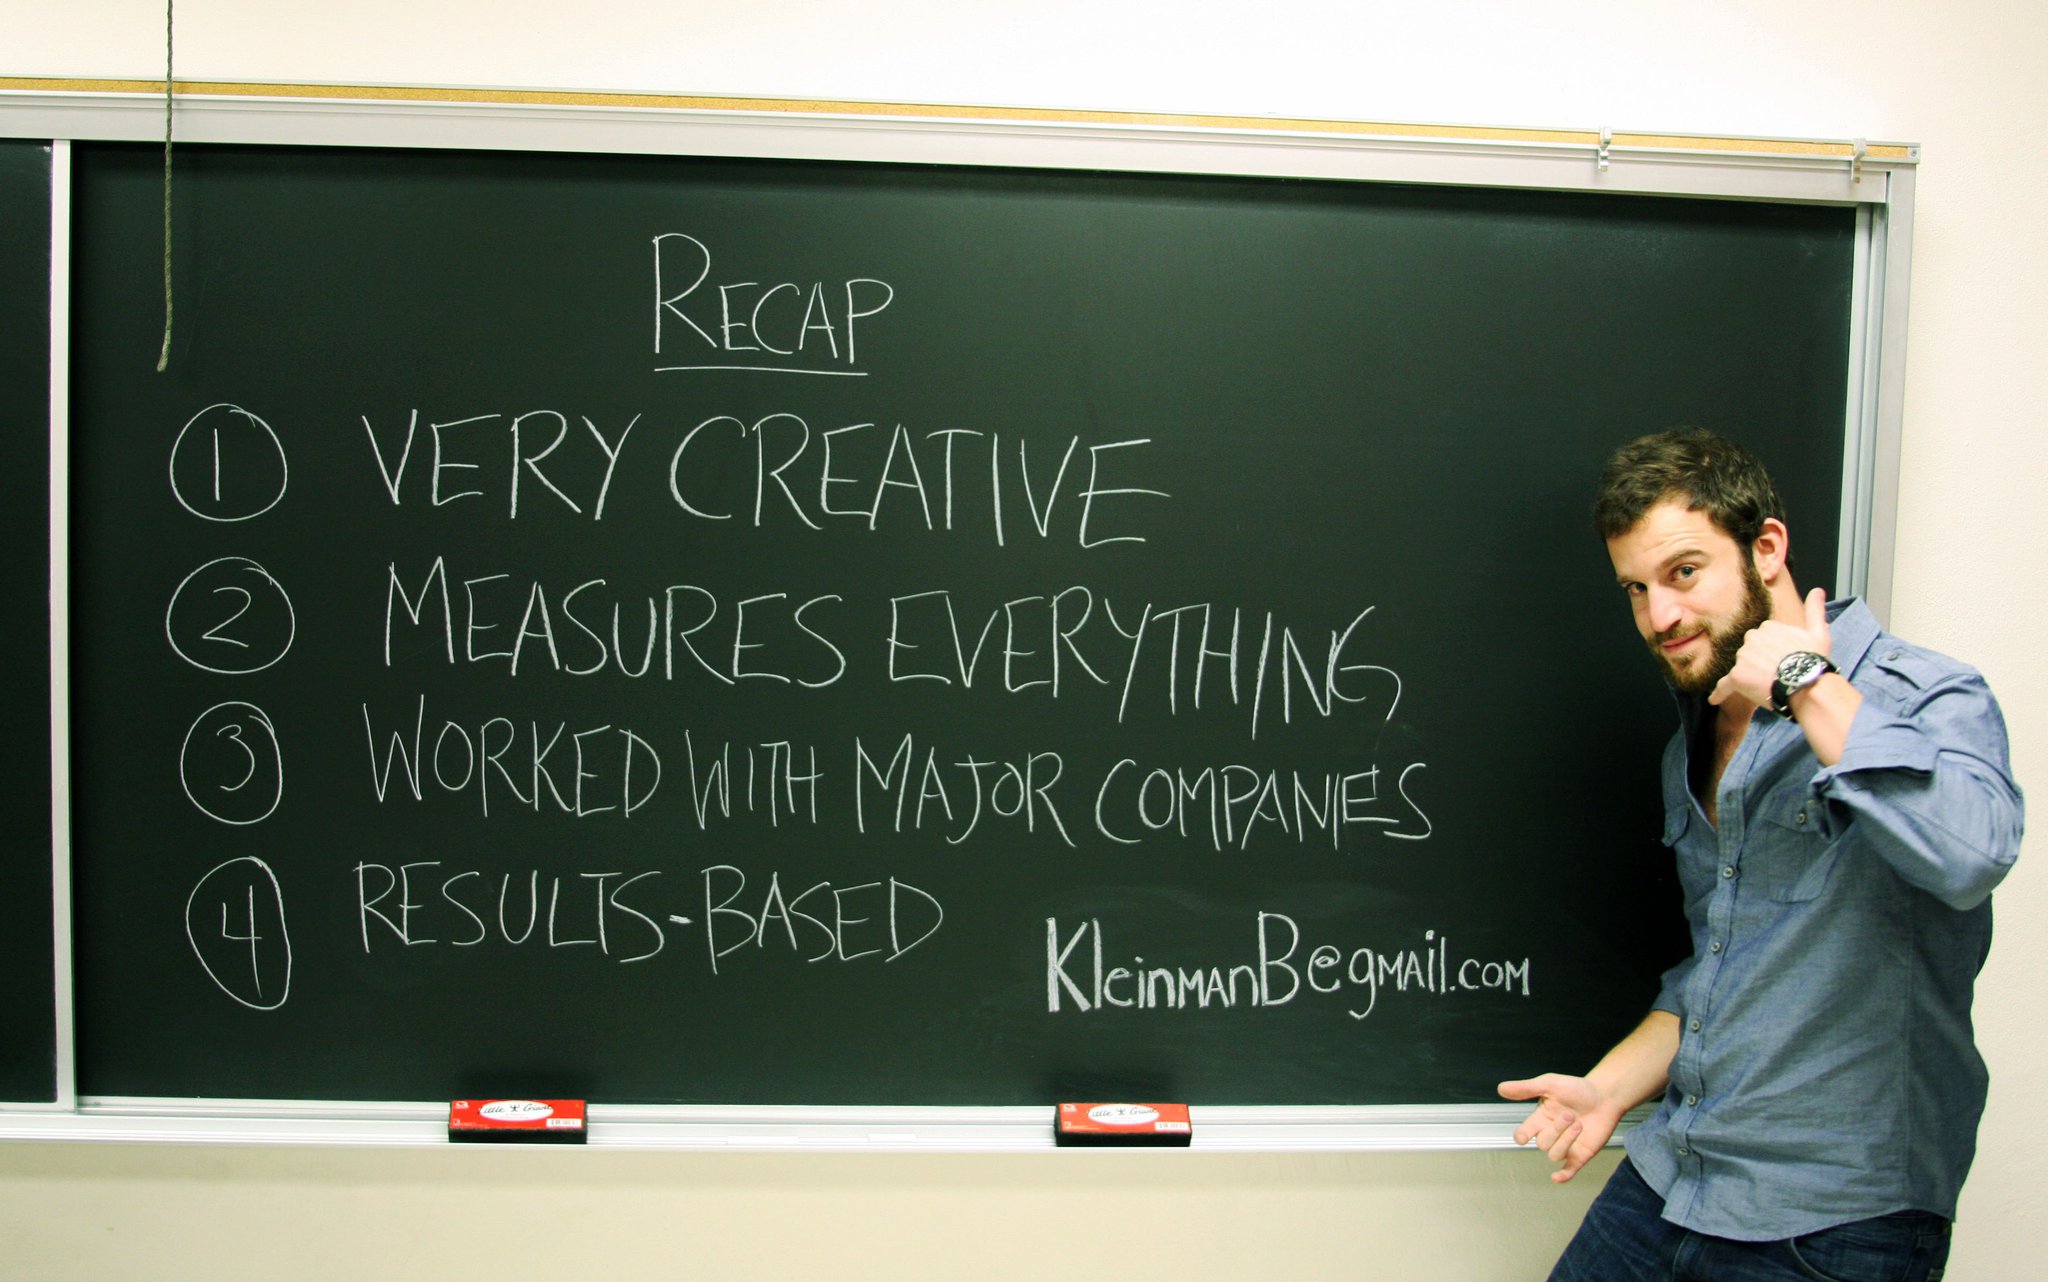 RECAP
1 VERY CREATIVE
2 MEASURES EVERYTHING
3 WORKED WITH MAJOR COMPANIES
4 RESULTS-BASED
KleinmanB@gmail.com
Little Giant
Little Giant